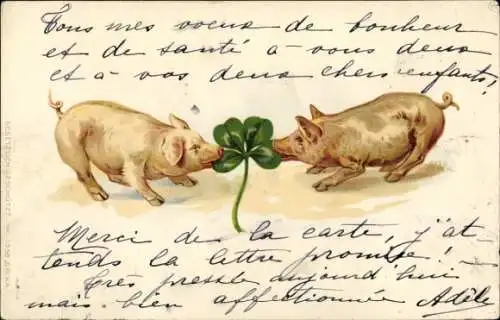 Tous mes voeux de bonheur
et de santé à vous deux
et à vos deux chers enfants!
Merci de la carte, j'at-
tends la lettre promise! -
Très pressée aujourd'hui
mais bien affectionnée Adèle